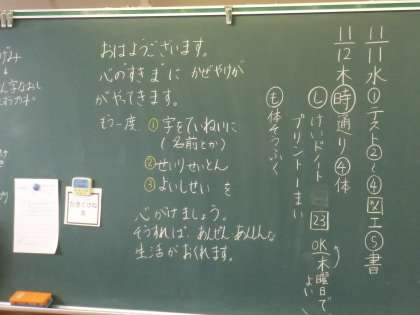 11/11 水 ① テスト ②〜④ 図工 ⑤ 書
11/12 木 時 通り ④ 体
し けいドノート 23 OK 木曜日で よい
プリント一まい
も 体そうふく
おはようございます。
心の"すきま"に かぜやけが
がやってきます。
もう一度 ① 字をていねいに
(名前とか)
② せいりせいとん
③ よいしせい を
心がけましょう。
そうすれば、あんぜん あんしんな
生活がおくれます。